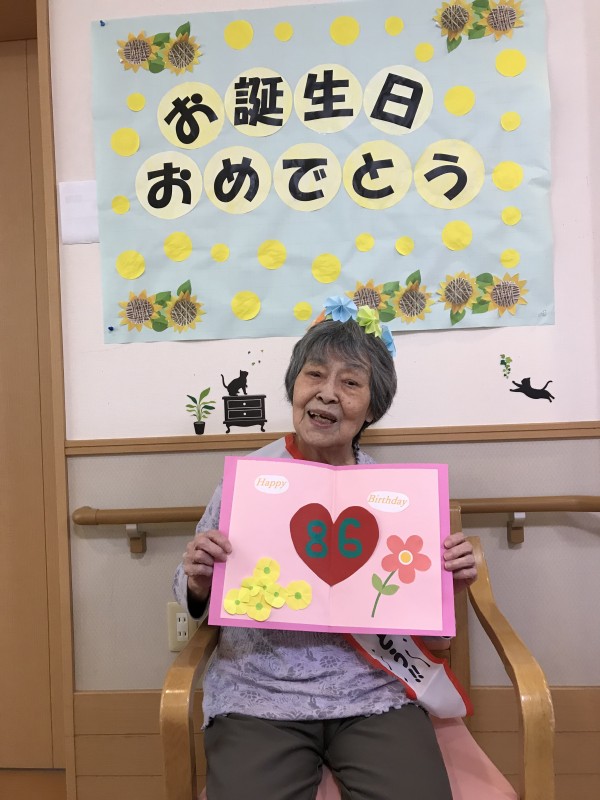 お誕生日
おめでとう
Happy
Birthday
86